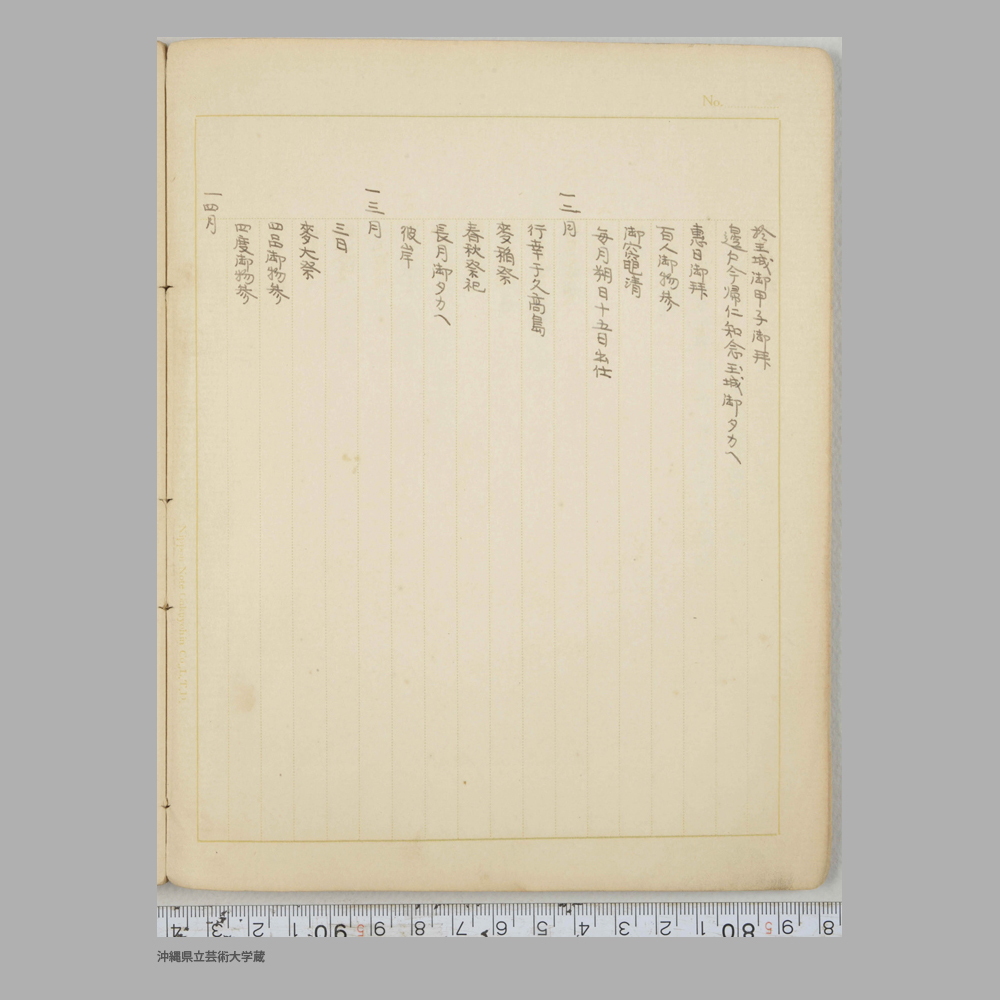 No.
於玉城御甲子御拝
邊戸今帰仁知念玉城御タカヘ
惠日御拝
百人御物参
御竈清
毎月朔日十五日出仕
一二月
行幸于久高島
麥穂祭
春秋祭祀
長月御タカヘ
彼岸
一三月
三日
麥大祭
四品御物参
四度御物参
一四月
沖縄県立芸術大学蔵